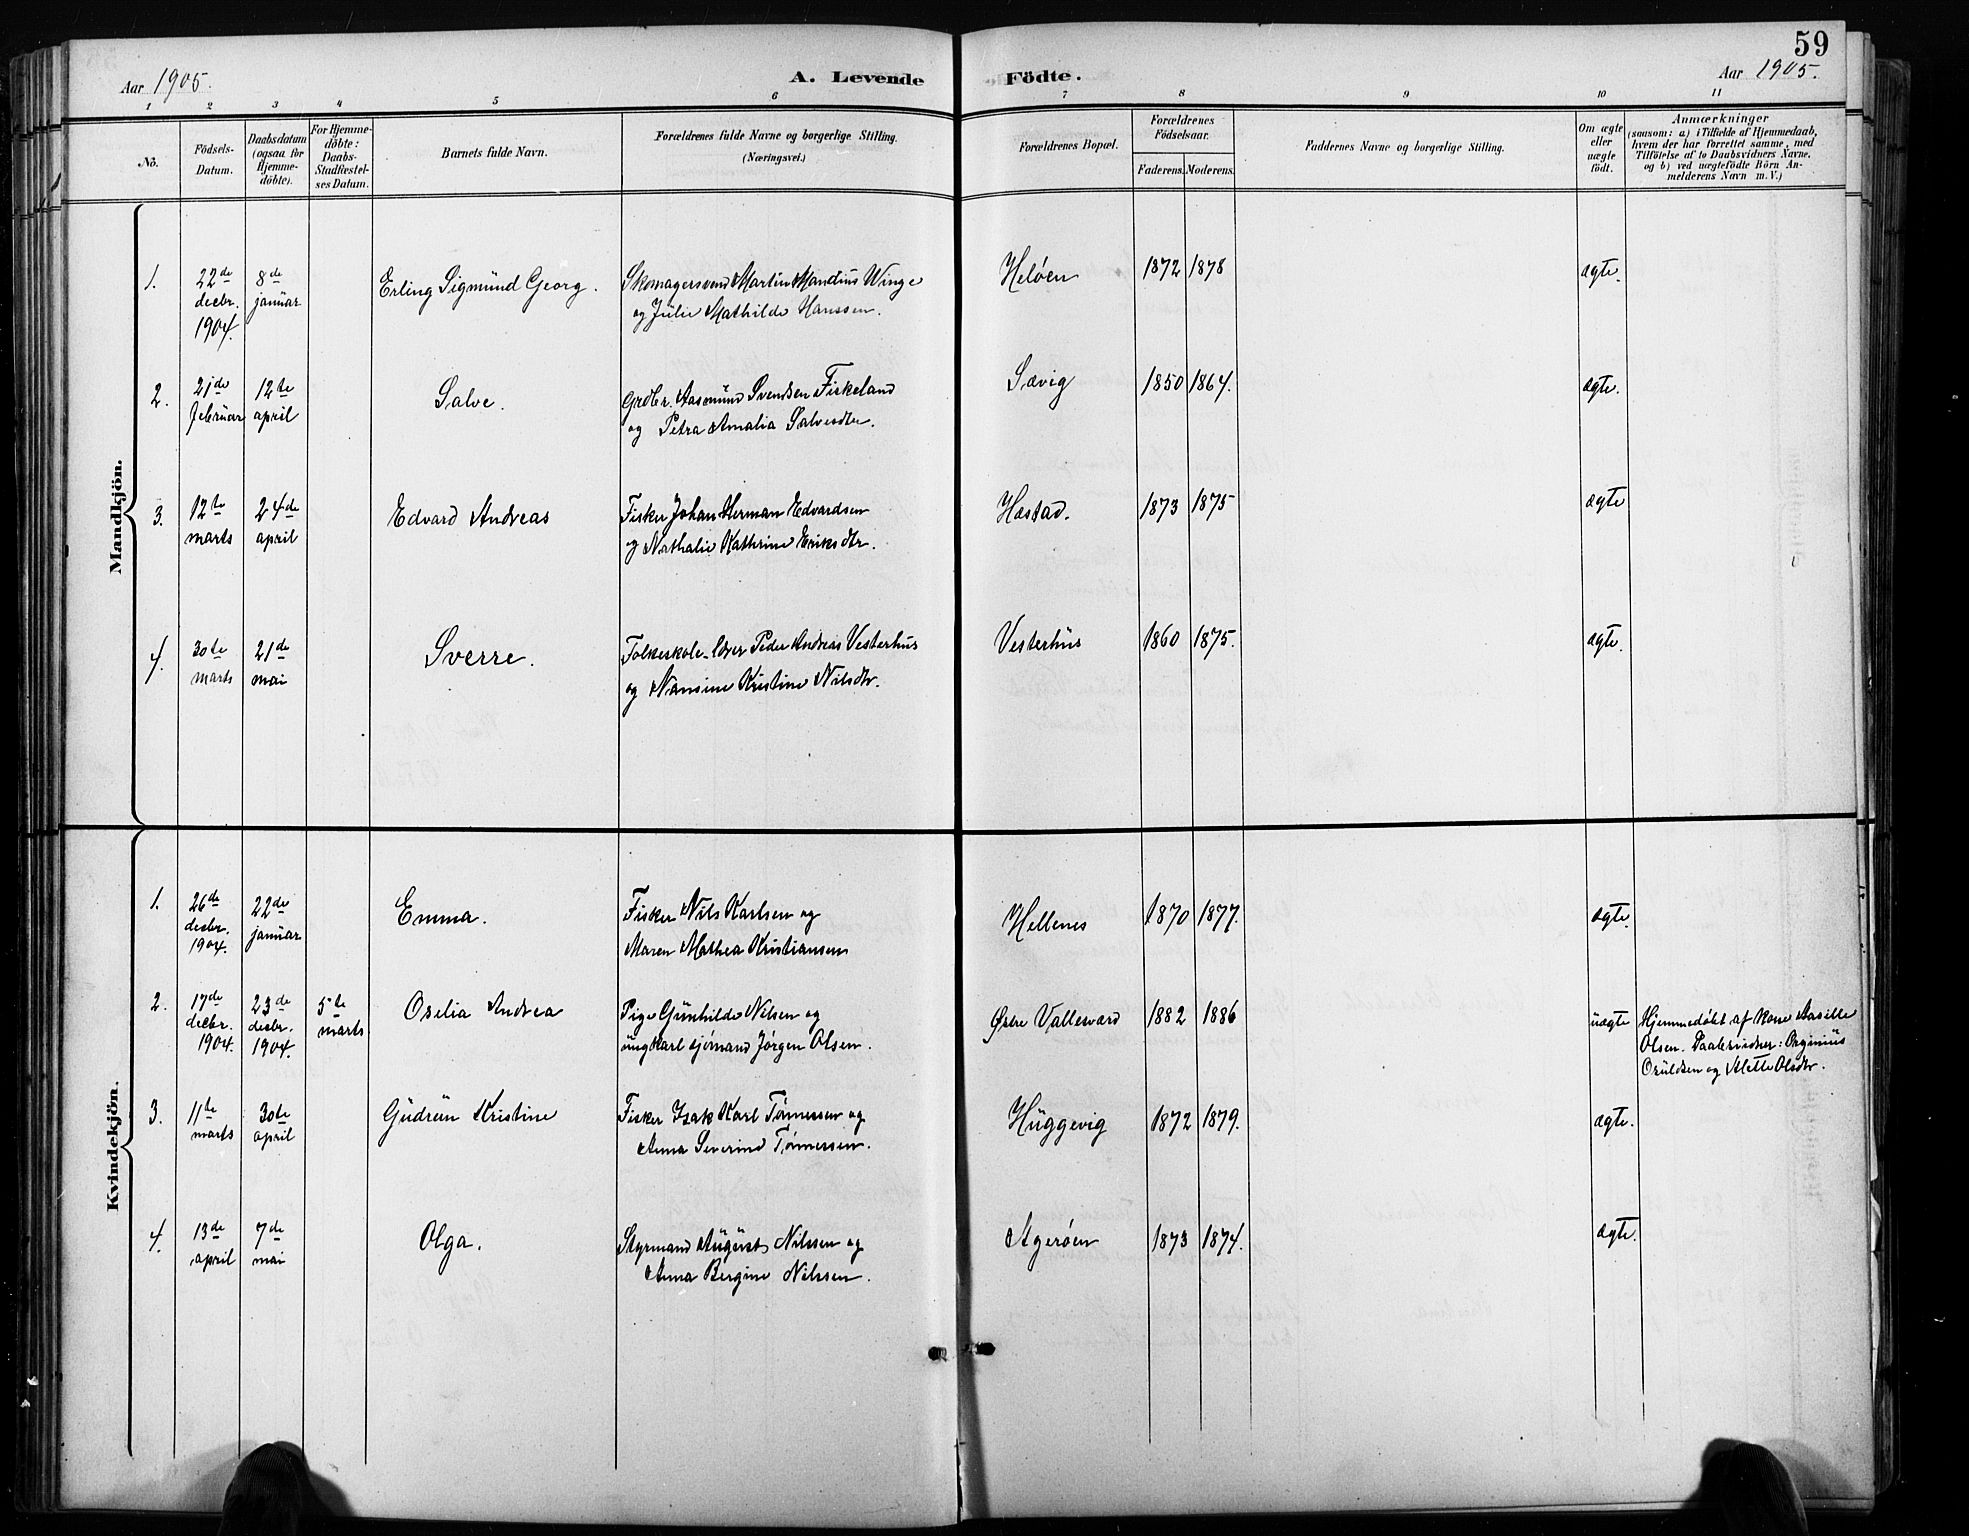 59
Aar 1905.
A. Levende Födte.
Aar 1905.
1 2 3 4 5 6 7 8 9 10 11
No.
Födsels-
Datum.
Daabsdatum
(ogsaa for
Hjemme-
döbte).
For Hjemme-
döbte:
Daabs-
Stadfæstel-
ses Datum.
Barnets fulde Navn.
Forældrenes fulde Navne og borgerlige Stilling.
(Næringsvei.)
Forældrenes Bopæl.
Forældrenes
Födselsaar.
Faderens. Moderens.
Faddernes Navne og borgerlige Stilling.
Om ægte
eller
uægte
födt.
Anmærkninger
(saasom: a) i Tilfælde af Hjemmedaab,
hvem der har forrettet samme, med
Tilföielse af to Daabsvidners Navne,
og b) ved uægtefödte Börn An-
melderens Navn m. V.)
Mandkjön.
1. 22de decbr. 1904. 8de januar Erling Sigmund Georg. Skomagersvend Martin Mandius Winge
og Julie Mathilde Hanssen. Heløen 1872 1878 ægte.
2. 21de februar 12te april Salve. Grdbr. Aasmund Svendsen Fiskeland
og Petra Amalia Salvesdtr. Sævig 1850 1864. ægte.
3. 12te marts 24de april Edvard Andreas Fisker Johan Herman Edvardsen
og Nathalie Kathrine Eriksdtr. Hæstad. 1873 1875 ægte
4. 30te marts 21de mai Sverre. Folkeskolelærer Peder Andreas Vesterhus
og Nansine Kristine Nilsdtr. Vesterhus 1860 1875. ægte.
Kvindekjön.
1. 26de decbr. 1904. 22de januar Emma. Fisker Nils Karlsen og
Maren Mathea Kristiansen Hellenes 1870 1877. ægte.
2. 17de decbr. 1904. 23de decbr. 1904. 5te marts Oselia Andrea Pige Gunhilde Nilsen og
ungkarl sjømand Jørgen Olsen. Østre Vallesværd 1882 1886 uægte Hjemmedøbt af Kone Aasille
Olsen. Daabsvidner:
Osuldsen og Alette Olsdtr.
3. 11te marts 30te april Gudrun Kristine Fisker Isak Karl Tønnessen og
Anna Severine Tønnessen. Huggevig 1872 1879. ægte.
4. 13de april 7de mai Olga. Styrmand August Nilssen og
Anna Bergine Nilssen. Agerøen 1873 1874. ægte.